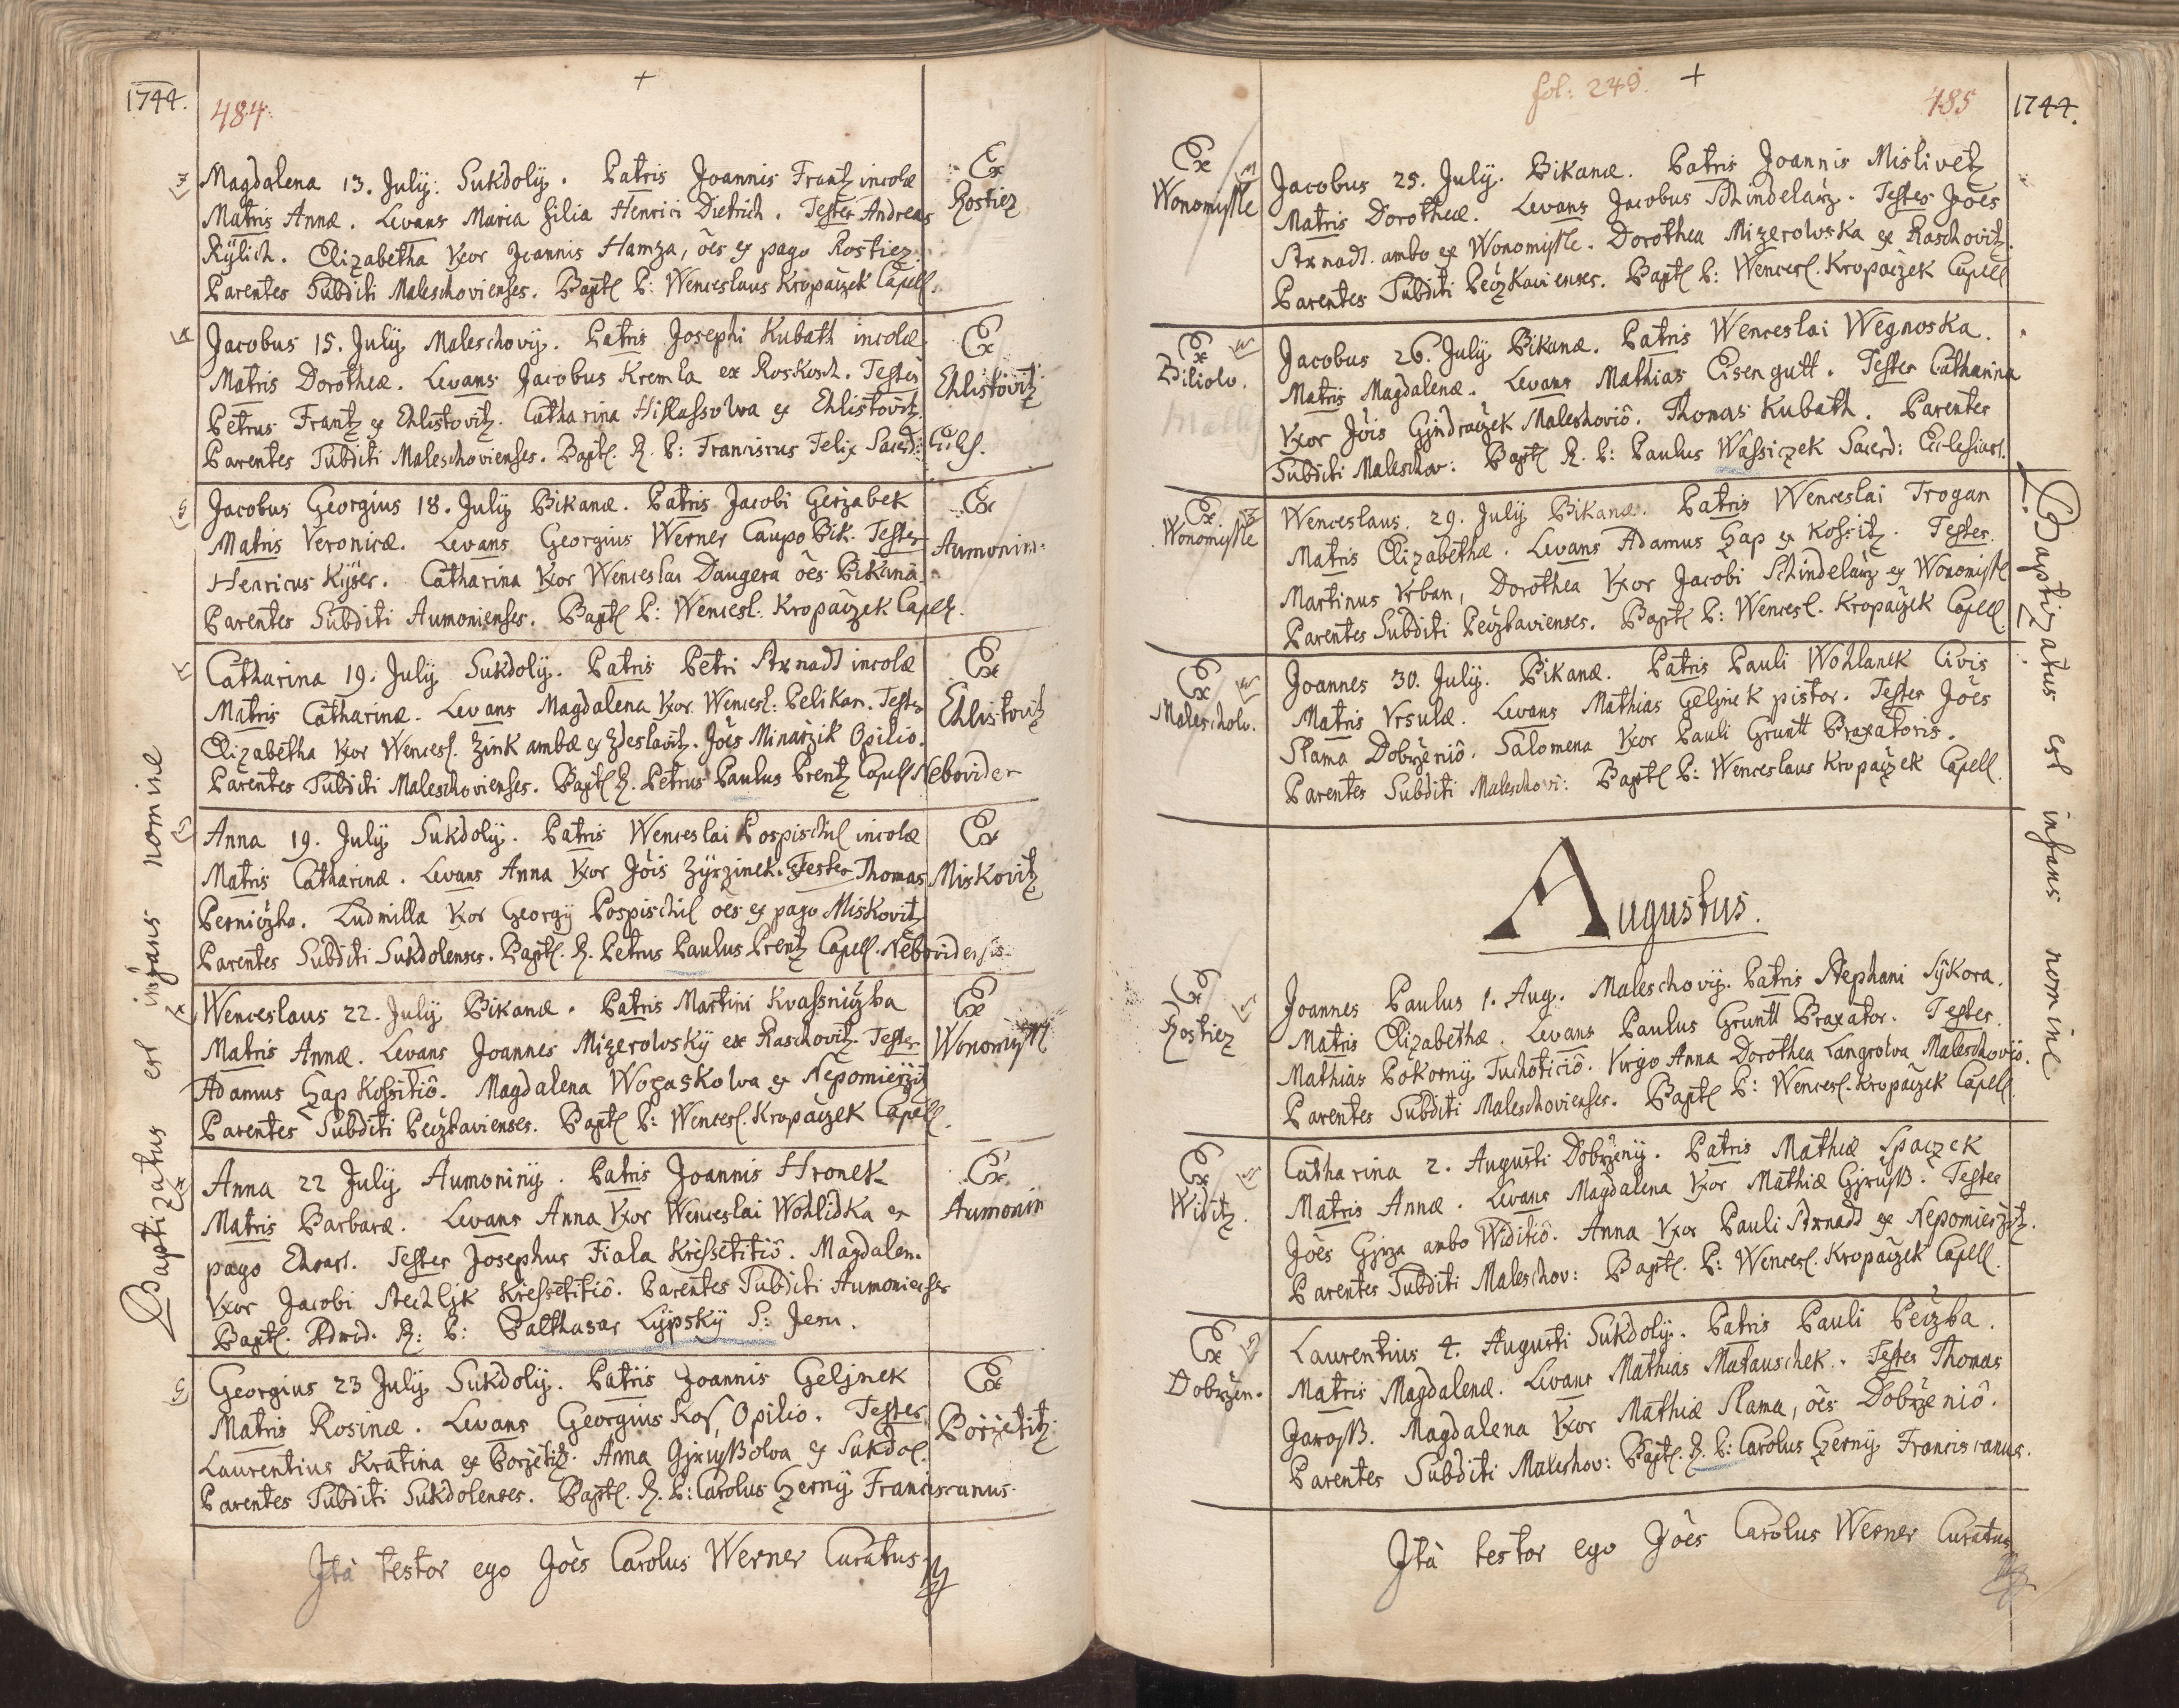 1744.
484.
+
Baptizatus est infans nomine
Magdalena 13. July. Sukdolij. Patris Joannis Frantz incolæ
Matris Annæ. Levans Maria filia Henrici Dietrich. Testes Andreas
Rylich. Elizabetha Vxor Joannis Hamza, oẽs ex pago Rostiez.
Parentes Subditi Maleschovienses. Bapt. P: Wenceslaus Kropaczek Capell.
Ex
Rostiez
Jacobus 15. July Maleschovij. Patris Josephi Kubath incolæ
Matris Dorotheæ. Levans Jacobus Kremla ex Roskosch. Testes
Petrus Frantz ex Chlistovitz. Catharina ex Chlistovitz.
Parentes Subditi Maleschovienses. Bapt. R. P: Franciscus Felix Sacerd: Eccles.
Ex
Chlistovitz
Jacobus Georgius 18. July Bikanæ. Patris Jacobi Gerzabek
Matris Veronicæ. Levans Georgius Werner Caupo Bik. Testes
Henricus Kyser. Catharina Vxor Wenceslai Daugera oẽs Bikanã.
Parentes Subditi Aumonienses. Bapt. P: Wencesl. Kropaczek Capell.
Ex
Aumonin.
Catharina 19. July Sukdolij. Patris Petri Strnadt incolæ
Matris Catharinæ. Levans Magdalena Vxor Wencesl: Pelikan. Testes
Elizabetha Vxor Wencesl. Zink ambæ ex Zdeslavitz. Joẽs Minarzik Opilio.
Parentes Subditi Maleschovienses. Bapt. R. Petrus Paulus Prentz Capell Nebovider
Ex
Chlistovitz
Anna 19. July Sukdolij. Patris Wenceslai Pospischil incolæ
Matris Catharinæ. Levans Anna Vxor Jõis Zyrzinek. Testes Thomas
Perniczka. Ludmilla Vxor Georgij Pospischil oẽs ex pago Miskovitz
Parentes Subditi Sukdolenses. Bapt. R. Petrus Paulus Prentz Capell. Nebovidensis.
Ex
Miskovitz
Wenceslaus 22. July Bikanæ. Patris Martini Kvassniczka
Matris Annæ. Levans Joannes Mizerowsky ex Raschovitz. Testes
Adamus Hap Kossitiõ. Magdalena ex Nepomierzitz
Parentes Subditi Peczkavienses. Bapt. P: Wencesl. Kropaczek Capell.
Ex
Wonomyssl
Anna 22 July Aumoninij. Patris Joannis Hronek
Matris Barbaræ. Levans Anna Vxor Wenceslai Wohlidka ex
pago Chrast. Testes Josephus Fiala Kressetitiõ. Magdalen.
Vxor Jacobi Stechljk Kressetitiõ. Parentes Subditi Aumonienses
Bapt. Admod. R: P: Balthasar Lypsky S: Jesu.
Ex
Aumonin
Georgius 23 July Sukdolij. Patris Joannis Geljnek
Matris Rosinæ. Levans Georgius Kos, Opilio. Testes
Laurentius Kratina ex Porzetitz. Anna Gjryßowa ex Sukdol.
Parentes Subditi Sukdolenses. Bapt. R. P: Carolus Czerny Franciscanus.
Ex
Porzetitz
Ità testor ego Joẽs Carolus Werner Curatus
fol: 249.
+
485
1744.
Baptizatus est infans nomine
Ex
Wonomyssle
Jacobus 25. July. Bikanæ. Patris Joannis Mislivetz
Matris Dorotheæ. Levans Jacobus Schindelarz. Testes Joẽs
Strnadt ambo ex Wonomyssle. Dorothea Mizerowska ex Raschovitz.
Parentes Subditi Peczkavienses. Bapt. P: Wencesl. Kropaczek Capell
Ex
Biliow.
Jacobus 26. July Bikanæ. Patris Wenceslai Wegnoska.
Matris Magdalenæ. Levans Mathias Eisengutt. Testes Catharina
Vxor Jõis Gjndraczek Maleschoviõ. Thomas Kubath. Parentes
Subditi Maleschov: Bapt. R. P: Paulus Wassiczek Sacerd: Ecclesiast.
Ex
Wonomyssle
Wenceslaus. 29. July Bikanæ. Patris Wenceslai Trogan
Matris Elizabethæ. Levans Adamus Hap ex Kossitz. Testes.
Martinus Vrban, Dorothea Vxor Jacobi Schindelarz ex Wonomissl
Parentes Subditi Peczkavienses. Bapt. P: Wencesl. Kropaczek Capell.
Ex
Maleschow.
Joannes 30. July. Bikanæ. Patris Pauli Wohlanek Civis
Matris Vrsulæ. Levans Mathias Geljnek pistor. Testes Joẽs
Slama Dobrzeniõ. Salomena Vxor Pauli Gruntt Braxatoris.
Parentes Subditi Maleschovi: Bapt. P: Wenceslaus Kropaczek Capell.
Augustus.
Ex
Rostiez
Joannes Paulus 1. Aug. Maleschovij. Patris Stephani Sykora.
Matris Elizabethæ. Levans Paulus Gruntt Braxator. Testes.
Mathias Pokorny Tuchoticiõ. Virgo Anna Dorothea Langrowa Maleschoviõ.
Parentes Subditi Maleschovienses. Bapt. P: Wencesl. Kropaczek Capell.
Ex
Widitz.
Catharina 2. Augusti Dobrzenij. Patris Mathiæ Spaczek
Matris Annæ. Levans Magdalena Vxor Mathiæ Gjryß. Testes
Joẽs Gjrza ambo Widitiõ. Anna Vxor Pauli Strnadt ex Nepomierzitz.
Parentes Subditi Maleschov: Bapt. P: Wencesl. Kropaczek Capell.
Ex
Dobrzen.
Laurentius 4. Augusti Sukdolij. Patris Pauli Peczka.
Matris Magdalenæ. Levans Mathias Matauschek. Testes Thomas
Jaroß. Magdalena Vxor Mathiæ Slama, oẽs Dobrzeniõ.
Parentes Subditi Maleshov: Bapt. R. P: Carolus Czerny Franciscanus.
Ità testor ego Joẽs Carolus Werner Curatus